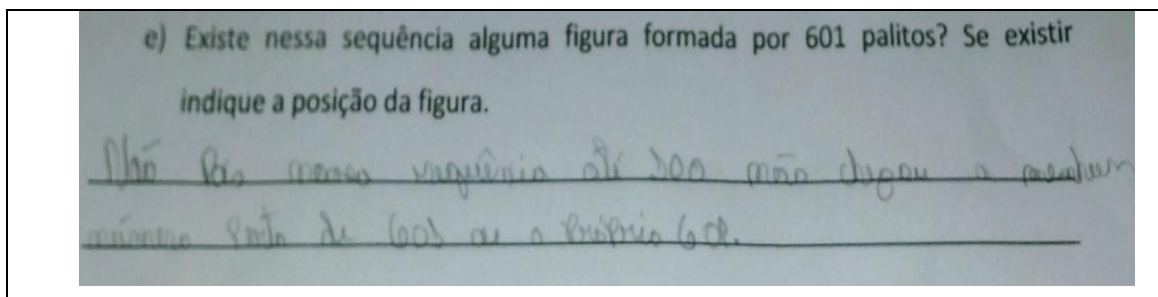 e) Existe nessa sequência alguma figura formada por 601 palitos? Se existir
indique a posição da figura.
Não Pois nessa sequência até 100 não chegou a nenhum
número Perto de 601 ou o Próprio 601.